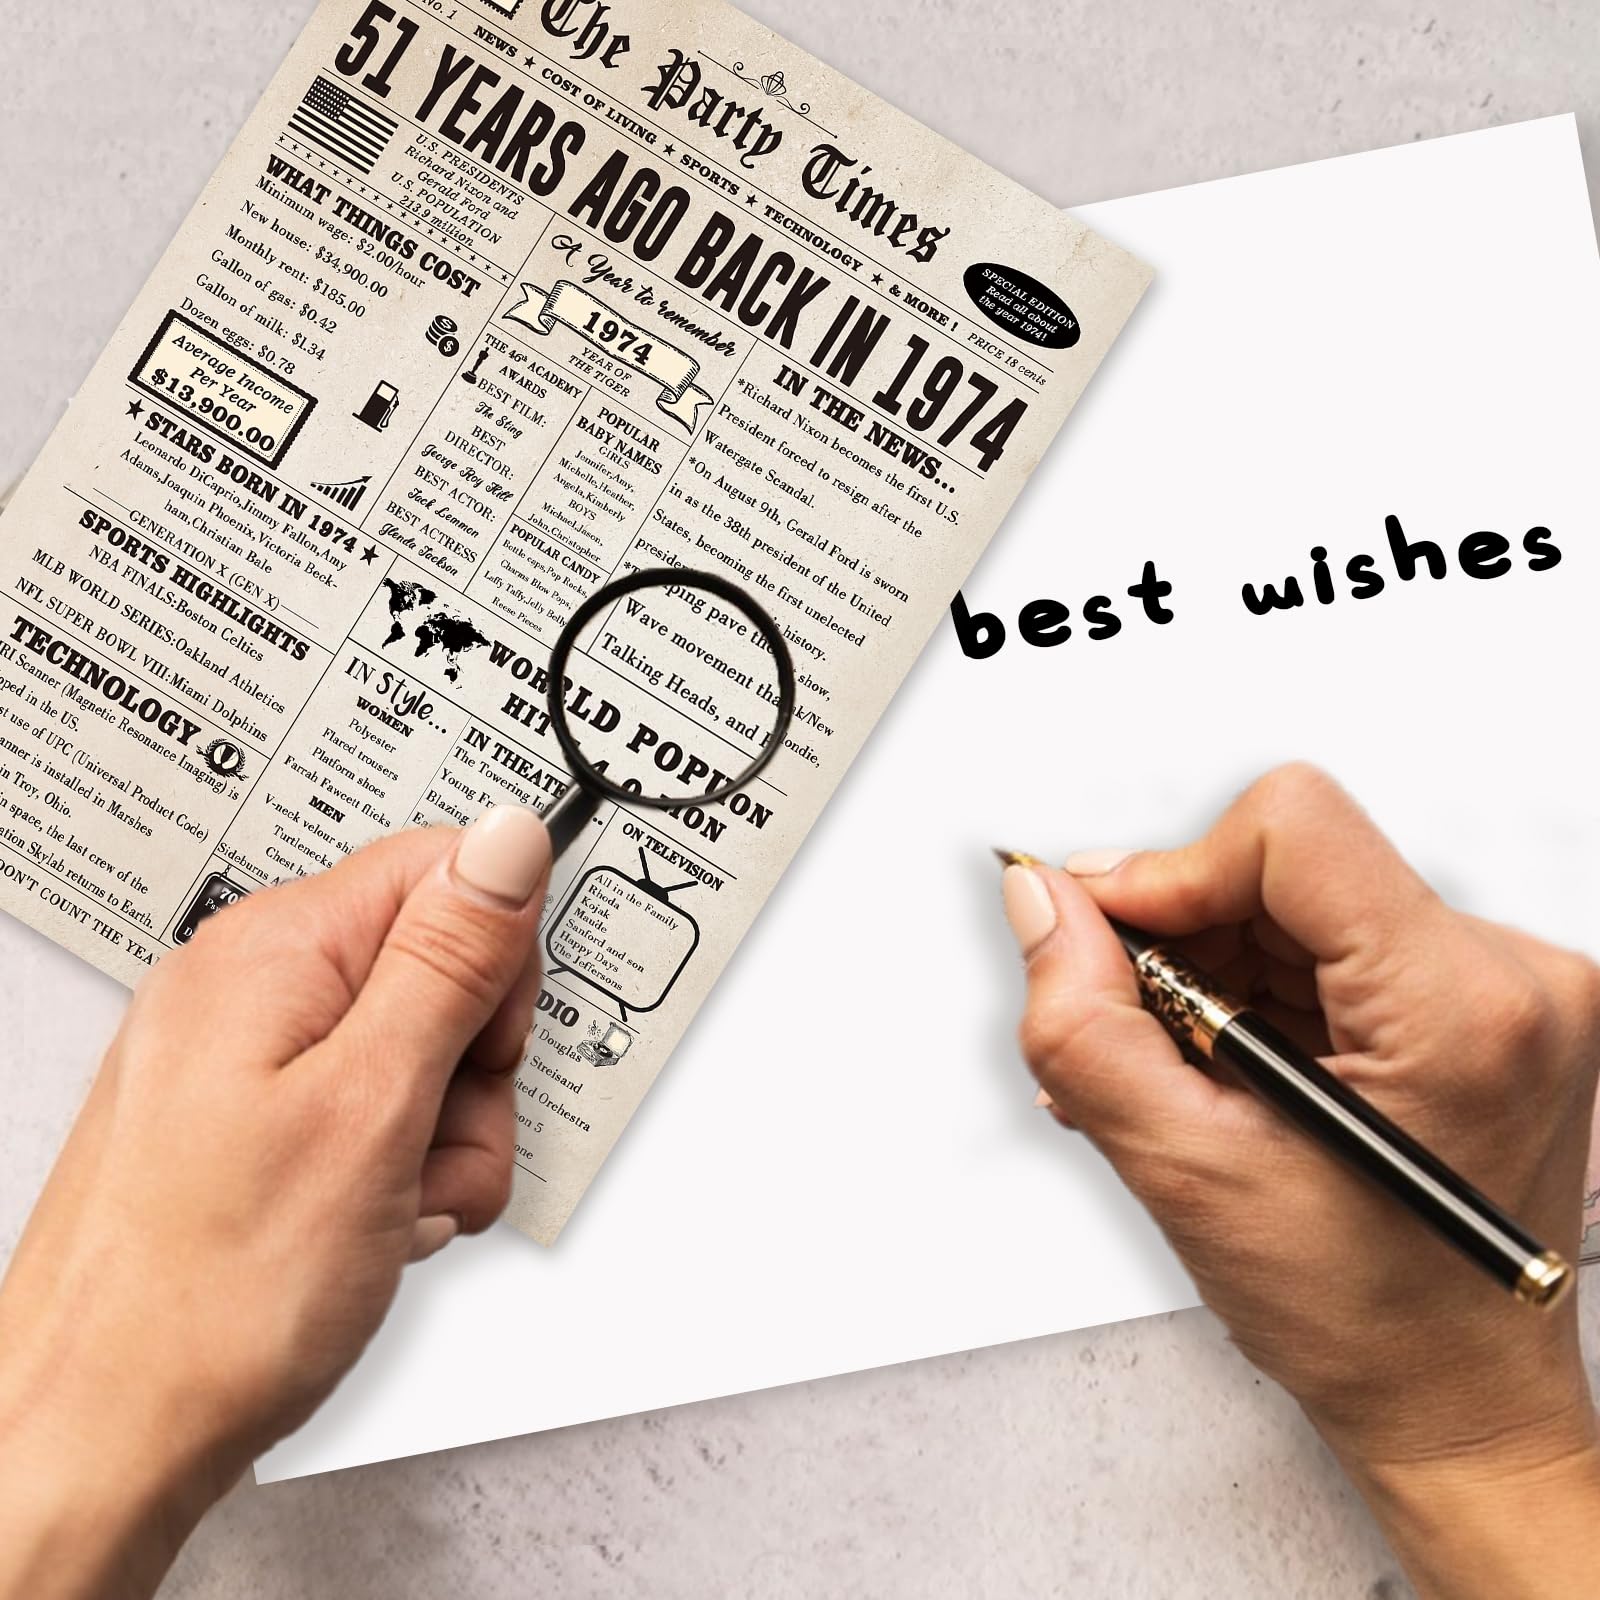 No. 1
The Party Times
NEWS ★ COST OF LIVING ★ SPORTS ★ TECHNOLOGY ★ & MORE !
PRICE 18 cents
51 YEARS AGO BACK IN 1974
SPECIAL EDITION
Read all about
the year 1974!
U.S. PRESIDENTS
Richard Nixon and
Gerald Ford
U.S. POPULATION
213.9 million
WHAT THINGS COST
Minimum wage: $2.00/hour
New house: $34,900.00
Monthly rent: $185.00
Gallon of gas: $0.42
Gallon of milk: $1.34
Dozen eggs: $0.78
Average Income
Per Year
$13,900.00
★ STARS BORN IN 1974 ★
Leonardo DiCaprio,Jimmy Fallon,Amy
Adams,Joaquin Phoenix,Victoria Beck-
ham,Christian Bale
GENERATION X (GEN X)
SPORTS HIGHLIGHTS
NBA FINALS:Boston Celtics
MLB WORLD SERIES:Oakland Athletics
NFL SUPER BOWL VIII:Miami Dolphins
TECHNOLOGY
RI Scanner (Magnetic Resonance Imaging) is
oped in the US.
st use of UPC (Universal Product Code)
anner is installed in Marshes
in Troy, Ohio.
in space, the last crew of the
ation Skylab returns to Earth.
DON'T COUNT THE YEA
A Year to remember
1974
YEAR OF
THE TIGER
THE 46th ACADEMY
AWARDS
BEST FILM:
The Sting
BEST
DIRECTOR:
George Roy Hill
BEST ACTOR:
Jack Lemmon
BEST ACTRESS
Glenda Jackson
POPULAR
BABY NAMES
GIRLS
Jennifer,Amy,
Michelle,Heather,
Angela,Kimberly
BOYS
Michael,Jason,
John,Christopher
POPULAR CANDY
Bottle caps,Pop Rocks,
Charms Blow Pops,
Laffy Taffy,Jelly Belly
Reese Pieces
IN THE NEWS...
*Richard Nixon becomes the first U.S.
President forced to resign after the
Watergate Scandal.
*On August 9th, Gerald Ford is sworn
in as the 38th president of the United
States, becoming the first unelected
president history.
ping pave the show,
Wave movement that nk/New
Talking Heads, and Blondie,
WORLD POPU ION
HIT 4.0 ION
IN Style...
WOMEN
Polyester
Flared trousers
Platform shoes
Farrah Fawcett flicks
MEN
V-neck velour shi
Turtlenecks
Chest h
Sideburns
70
IN THEATE
The Towering In
Young Fr
Blazing
Ear
ON TELEVISION
All in the Family
Rhoda
Kojak
Maude
Sanford and son
Happy Days
The Jeffersons
DIO
Douglas
Streisand
ited Orchestra
son 5
one
best wishes